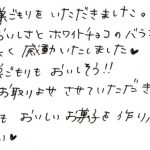 巣ごもりをいただきました。
おいしさとホワイトチョコのバラン
く感動いたしました♥
巣ごもりもおいしそう!!
お取りよせさせていただき
もおいしいお菓子を作り
い♥